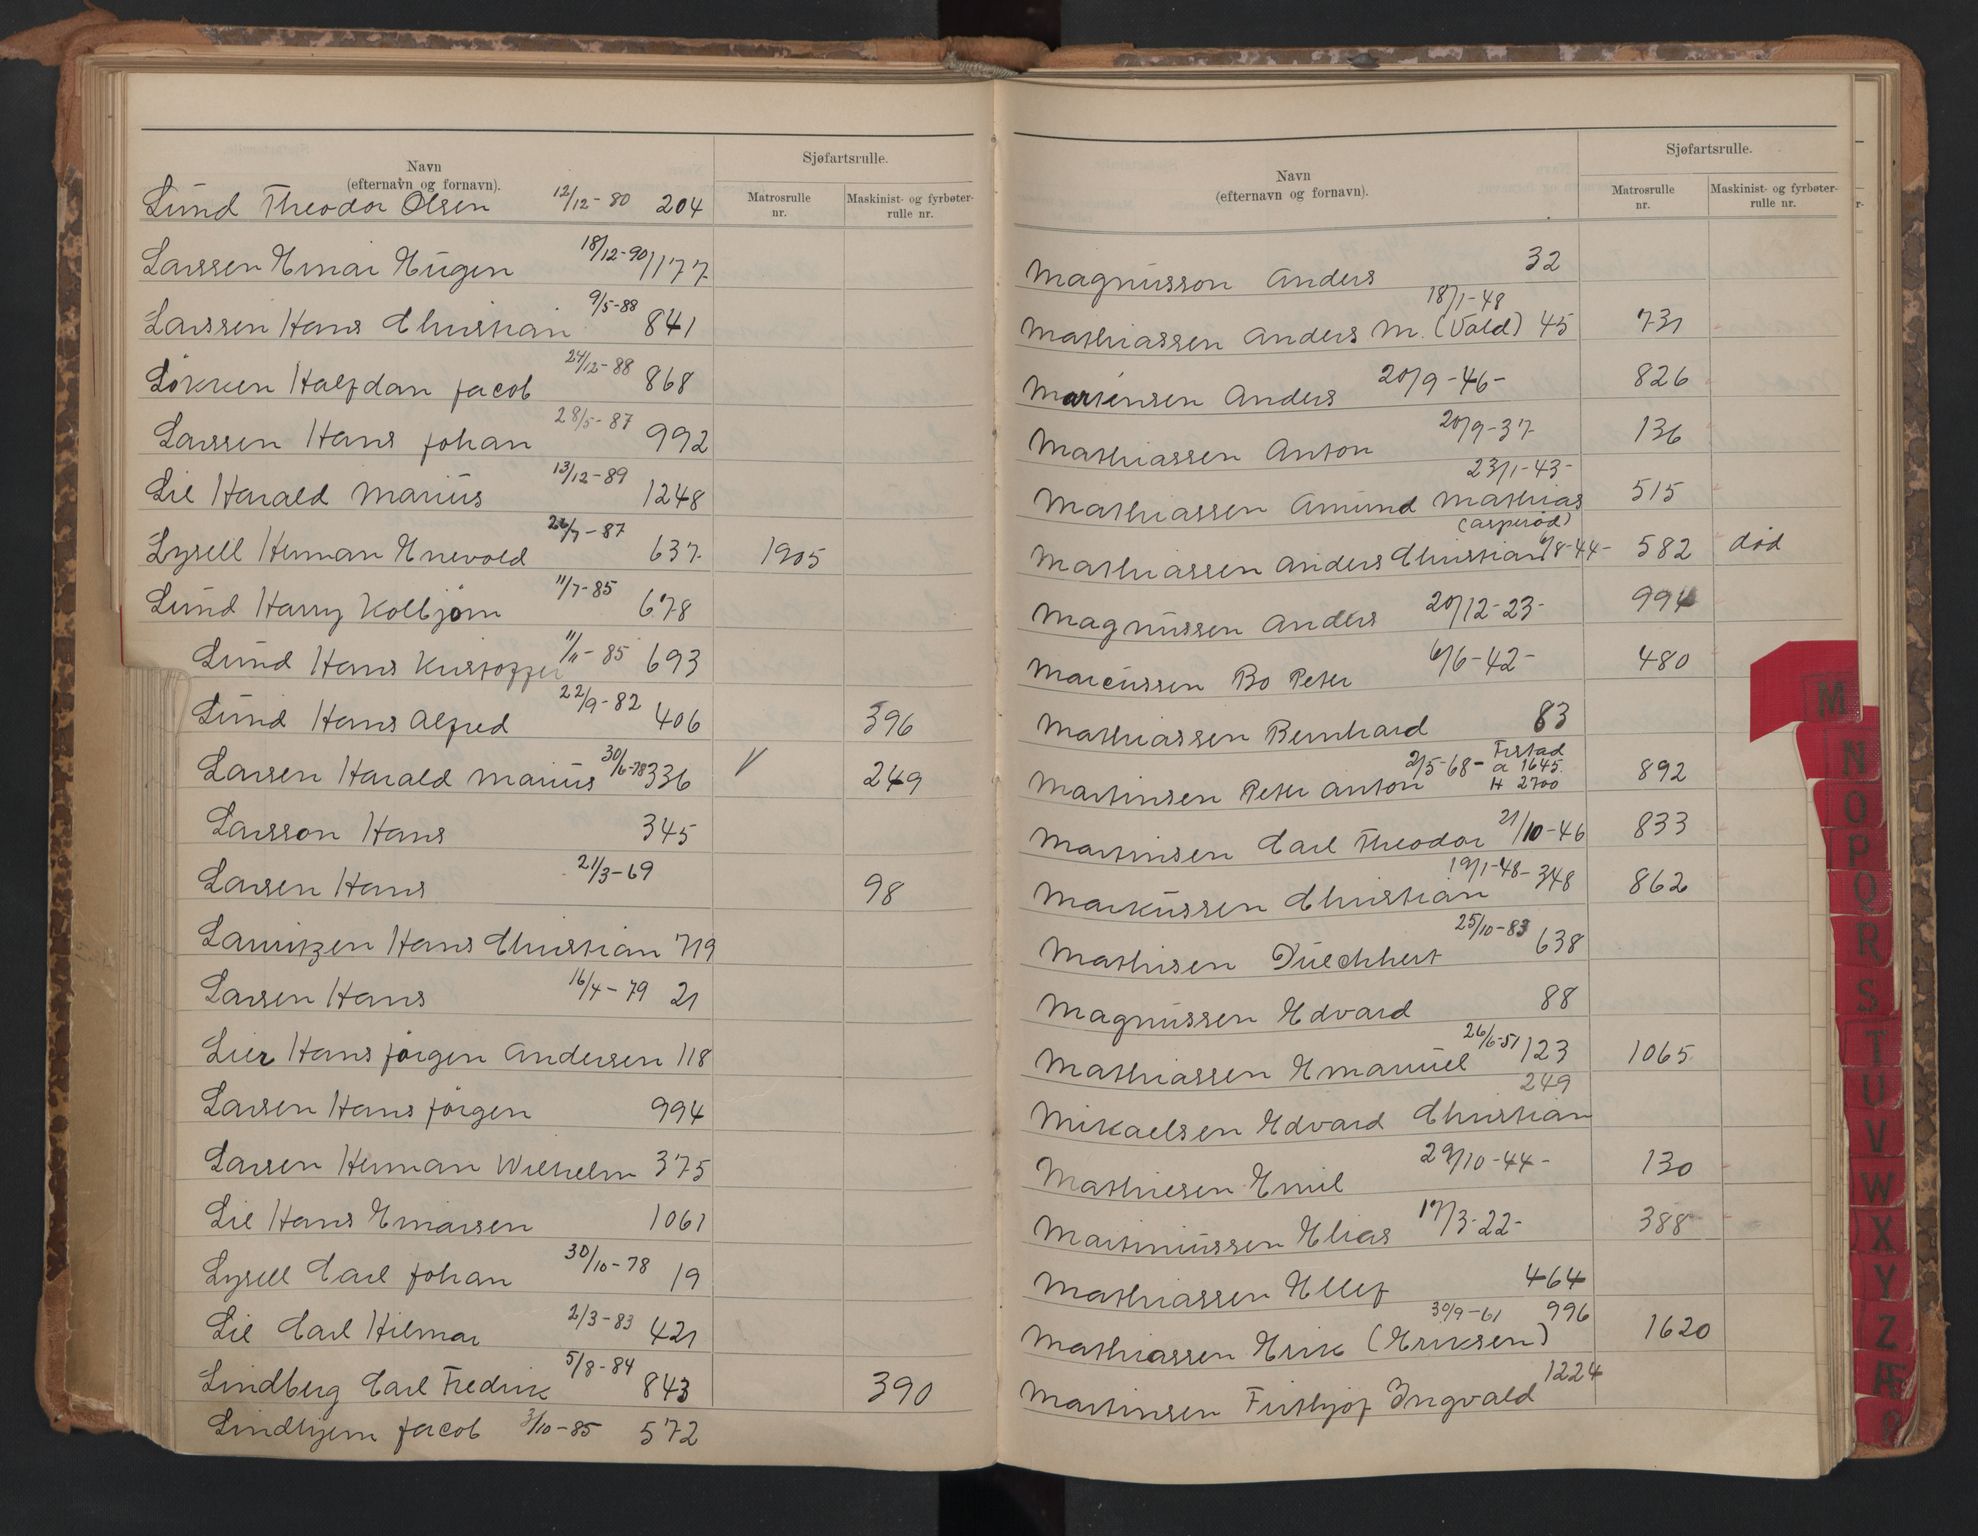 Navn
(efternavn og fornavn).
Sjøfartsrulle.
Matrosrulle nr.
Maskinist- og fyrbøter-rulle nr.
Lund Theodor Olsen 12/12-80 204
Larssen Einar Eugen 18/12-90 1177
Larssen Hans Christian 9/5-88 841
Løkken Halfdan Jacob 24/12-88 868
Larssen Hans Johan 28/5-87 992
Lie Harald Marius 13/12-89 1248
Lysell Herman Enevold 26/7-87 637 1905
Lund Harry Kolbjørn 11/7-85 678
Lund Hans Kristoffer 11/11-85 693
Lund Hans Alfred 22/9-82 406 396
Larsen Harald Marius 30/6-78 336 V 249
Larsson Hans 345
Larsen Hans 21/3-69 98
Lauritzen Hans Christian 719
Larsen Hans 16/4-79 21
Lier Hans Jørgen Andersen 118
Larsen Hans Jørgen 994
Larsen Herman Wilhelm 375
Lie Hans Einarsen 1061
Lysell Carl Johan 30/10-78 19
Lie Carl Hilmar 2/3-83 421
Lindberg Carl Fredrik 5/8-84 843 390
Lindhjem Jacob 3/10-85 572
Navn
(efternavn og fornavn).
Sjøfartsrulle.
Matrosrulle nr.
Maskinist- og fyrbøter-rulle nr.
Magnusson Anders 32
Mathiassen Anders M. (Vald) 18/1-48 45 731
Martensen Anders 20/9-46- 826
Mathiassen Anton 20/9-37- 136
Mathiassen Amund Mathias 23/1-43- 515
(Asperød)
Mathiassen Anders Christian 6/8-44- 582 død
Magnussen Anders 20/12-23- 994
Marcussen Bo Peter 6/6-42- 480
Mathiassen Bernhard 83
Martinsen Peter Anton 2/5-68- Fristad a 1645. H 2700 892
Martinsen Carl Theodor 21/10-46 833
Markussen Christian 19/1-48- 348 862
Mathisen 25/10-83 638
Magnussen Edvard 88
Mathiassen Emanuel 26/6-51 123 1065
Mikaelsen Edvard Christian 249
Mathiesen Emil 29/10-44- 130
Martiniussen Elias 17/3-22- 388
Mathiassen Ellef 464
Mathiassen Erik (Eriksen) 30/9-61 996 1620
Martinsen Frithjof Ingvald 1224
M
N
O
P
Q
R
S
T
U
V
W
X
Y
Z
Æ
Ø